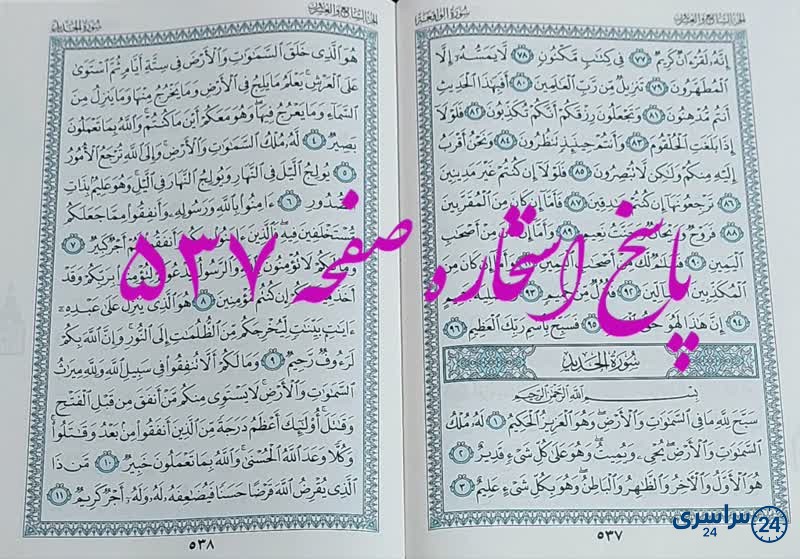 الجزء السابع والعشرون
سورة الواقعة
إِنَّهُ لَقُرْءَانٌ كَرِيمٌ ٧٧ فِى كِتَٰبٍ مَّكْنُونٍ ٧٨ لَّا يَمَسُّهُۥٓ إِلَّا
ٱلْمُطَهَّرُونَ ٧٩ تَنزِيلٌ مِّن رَّبِّ ٱلْعَٰلَمِينَ ٨٠ أَفَبِهَٰذَا ٱلْحَدِيثِ
أَنتُم مُّدْهِنُونَ ٨١ وَتَجْعَلُونَ رِزْقَكُمْ أَنَّكُمْ تُكَذِّبُونَ ٨٢ فَلَوْلَآ
إِذَا بَلَغَتِ ٱلْحُلْقُومَ ٨٣ وَأَنتُمْ حِينَئِذٍ تَنظُرُونَ ٨٤ وَنَحْنُ أَقْرَبُ
إِلَيْهِ مِنكُمْ وَلَٰكِن لَّا تُبْصِرُونَ ٨٥ فَلَوْلَآ إِن كُنتُمْ غَيْرَ مَدِينِينَ
٨٦ تَرْجِعُونَهَآ إِن كُنتُمْ صَٰدِقِينَ ٨٧ فَأَمَّآ إِن كَانَ مِنَ ٱلْمُقَرَّبِينَ
٨٨ فَرَوْحٌ وَرَيْحَانٌ نَعِيمٍ ٨٩ وَأَمَّآ إِن مِنْ أَصْحَٰبِ
ٱلْيَمِينِ ٩٠ فَسَلَٰمٌ لَّكَ مِنْ أَصْحَٰبِ ٩١ وَأَمَّآ إِن كَانَ مِنَ
ٱلْمُكَذِّبِينَ ٩٢ فَنُزُلٌ مِّنْ ٩٣
٩٤ إِنَّ هَٰذَا لَهُوَ حَقُّ ٩٥ فَسَبِّحْ بِٱسْمِ رَبِّكَ ٱلْعَظِيمِ ٩٦
سورة الحديد
بِسْمِ ٱللَّهِ ٱلرَّحْمَٰنِ ٱلرَّحِيمِ
سَبَّحَ لِلَّهِ مَا فِى ٱلسَّمَٰوَٰتِ وَٱلْأَرْضِ وَهُوَ ٱلْعَزِيزُ ٱلْحَكِيمُ ١ لَهُۥ مُلْكُ
ٱلسَّمَٰوَٰتِ وَٱلْأَرْضِ يُحْىِۦ وَيُمِيتُ وَهُوَ عَلَىٰ كُلِّ شَىْءٍ قَدِيرٌ ٢
هُوَ ٱلْأَوَّلُ وَٱلْءَاخِرُ وَٱلظَّٰهِرُ وَٱلْبَاطِنُ وَهُوَ بِكُلِّ شَىْءٍ عَلِيمٌ ٣
٥٣٧
الجزء السابع والعشرون
سورة الحديد
هُوَ ٱلَّذِى خَلَقَ ٱلسَّمَٰوَٰتِ وَٱلْأَرْضَ فِى سِتَّةِ أَيَّامٍ ثُمَّ ٱسْتَوَىٰ
عَلَى ٱلْعَرْشِ يَعْلَمُ مَا يَلِجُ فِى ٱلْأَرْضِ وَمَا يَخْرُجُ مِنْهَا وَمَا يَنزِلُ مِنَ
ٱلسَّمَآءِ وَمَا يَعْرُجُ فِيهَا وَهُوَ مَعَكُمْ أَيْنَ مَا كُنتُمْ وَٱللَّهُ بِمَا تَعْمَلُونَ
بَصِيرٌ ٤ لَّهُۥ مُلْكُ ٱلسَّمَٰوَٰتِ وَٱلْأَرْضِ وَإِلَى ٱللَّهِ تُرْجَعُ ٱلْأُمُورُ
٥ يُولِجُ ٱلَّيْلَ فِى ٱلنَّهَارِ وَيُولِجُ ٱلنَّهَارَ فِى ٱلَّيْلِ وَهُوَ عَلِيمٌۢ بِذَاتِ
ٱلصُّدُورِ ٦ ءَامِنُوا۟ بِٱللَّهِ وَرَسُولِهِۦ وَأَنفِقُوا۟ مِمَّا جَعَلَكُم
مُّسْتَخْلَفِينَ فِيهِ فَٱلَّذِينَ وَأَنفَقُوا۟ لَهُمْ أَجْرٌ كَبِيرٌ ٧
وَمَا لَكُمْ لَا تُؤْمِنُونَ وَٱلرَّسُولُ يَدْعُوكُمْ لِتُؤْمِنُوا۟ بِرَبِّكُمْ وَقَدْ
أَخَذَ إِن كُنتُم مُّؤْمِنِينَ ٨ هُوَ ٱلَّذِى يُنَزِّلُ عَلَىٰ عَبْدِهِۦٓ
ءَايَٰتٍۭ بَيِّنَٰتٍ لِّيُخْرِجَكُم مِّنَ ٱلظُّلُمَٰتِ إِلَى ٱلنُّورِ وَإِنَّ ٱللَّهَ بِكُمْ
لَرَءُوفٌ رَّحِيمٌ ٩ وَمَا لَكُمْ أَلَّا تُنفِقُوا۟ فِى سَبِيلِ ٱللَّهِ وَلِلَّهِ مِيرَٰثُ
ٱلسَّمَٰوَٰتِ وَٱلْأَرْضِ لَا يَسْتَوِى مِنكُم مَّنْ أَنفَقَ مِن قَبْلِ ٱلْفَتْحِ
وَقَٰتَلَ أُو۟لَٰٓئِكَ أَعْظَمُ دَرَجَةً مِّنَ ٱلَّذِينَ أَنفَقُوا۟ مِنۢ بَعْدُ وَقَٰتَلُوا۟
وَكُلًّا وَعَدَ ٱللَّهُ ٱلْحُسْنَىٰ وَٱللَّهُ بِمَا تَعْمَلُونَ خَبِيرٌ ١٠ مَّن ذَا
ٱلَّذِى يُقْرِضُ ٱللَّهَ قَرْضًا حَسَنًا فَيُضَٰعِفَهُۥ لَهُۥ وَلَهُۥٓ أَجْرٌ كَرِيمٌ ١١
٥٣٨
پاسخ استخاره صفحه ۵۳۷
سراسری 24
24